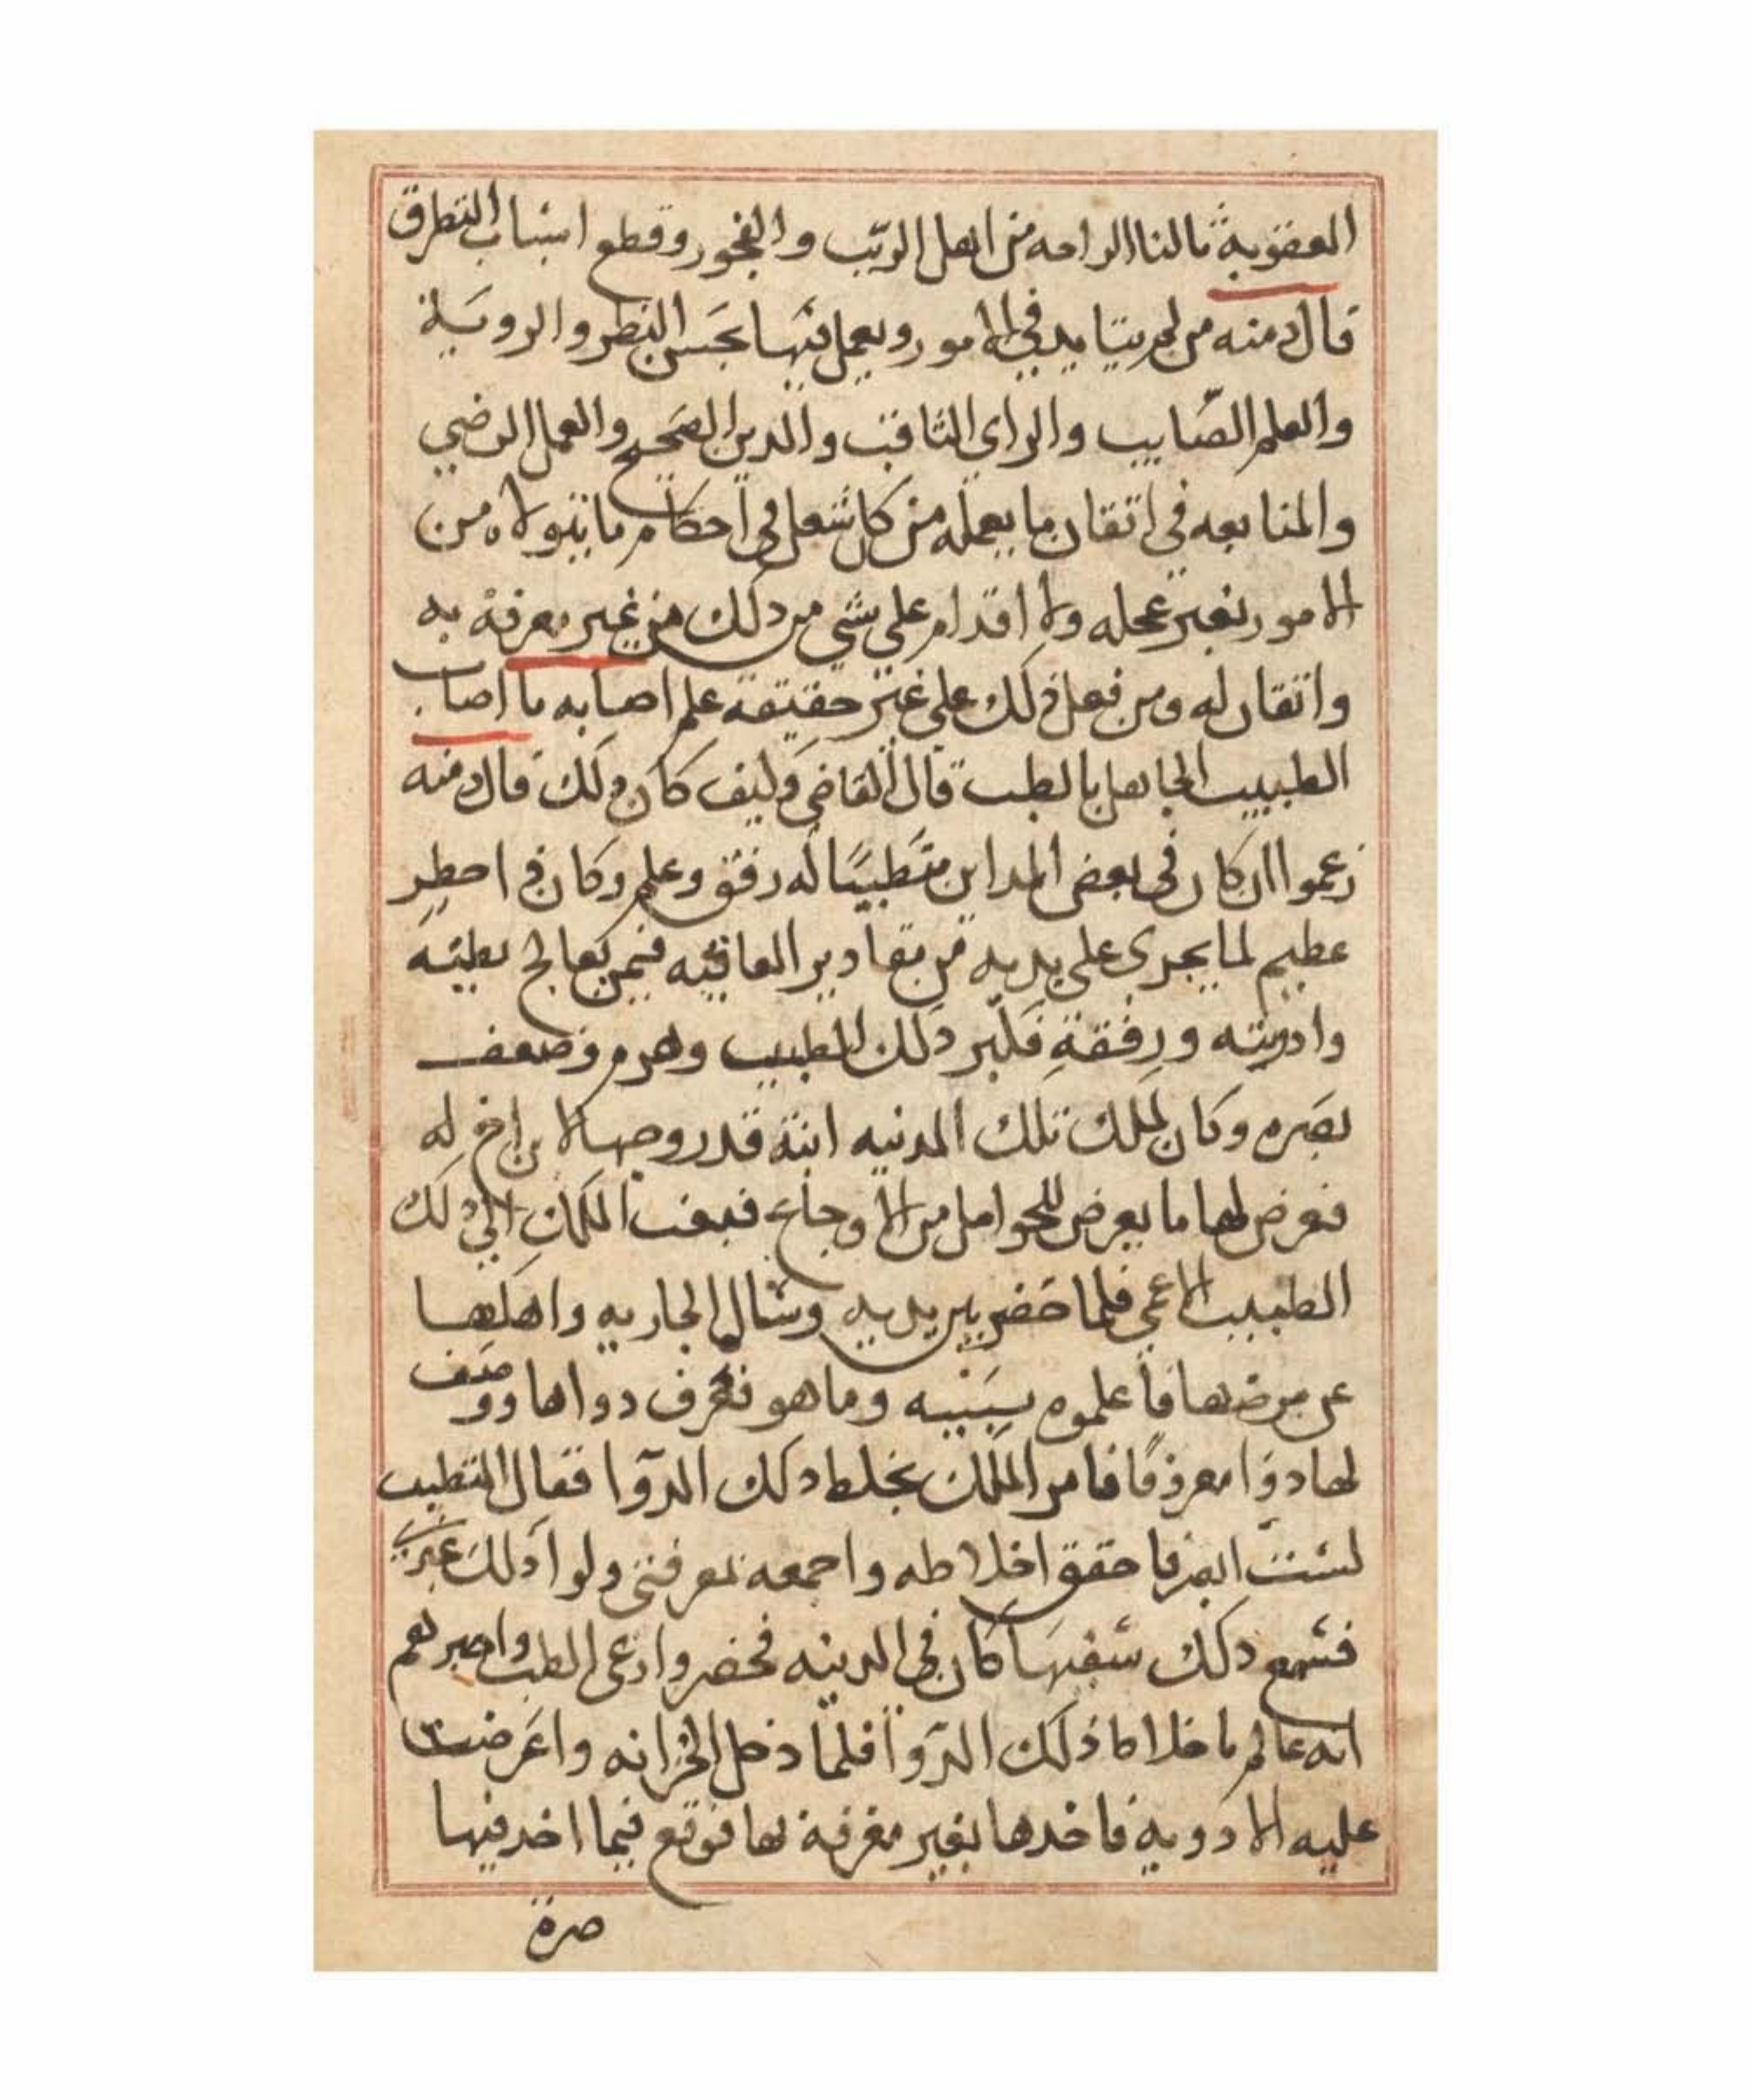 العقوبة مالنا الراحه من اهل الريب والفجور وقطع اسباب التطرق
قال دمنه من لم يتايد في الامور ويعمل فيها بحسن النظر والروية
والعلم الصايب والراي الثاقب والدين الصحيح والعمل الرضي
والمتابعه في اتقان ما يعمله من كل شغل في احكام ما يتولاه من
الامور بغير عجله ولا اقدام على شي من دلك من غير معرفة به
واتقان له ومن فعل ذلك على غير حقيقة علم اصابه ما اصاب
الطبيب الجاهل بالطب قال القاضي وكيف كان ذلك قال دمنه
زعموا ان كان في بعض المداين متطببا له رفق وعلم وكان في احطر
عظيم لما يجري على يديه من مقادير العافيه فيمن يعالج بطبه
وادويته ورفقة فكبر ذلك الطبيب وهرم وضعف
بصره وكان لملك تلك المدنيه ابنة قد زوجها لابن اخ له
فعرض لها ما يعرض للحوامل من الاوجاع فبعث الملك الي ذلك
الطبيب الاعمي فلما حضر بين يديه وسال الجاريه واهلها
عن مرضها فاعلموه بسببه وما هو فعرف دواها ووصف
لها دوا معروفا فامر الملك بخلط دلك الدوا فقال المتطبب
لست ابصر فاحقق اخلاطه واجمعه بمعرفتي ولوا ذلك غيري
فسمع دلك سفيها كان في المدينه فحضر وادعى الطب واخبرهم
انه عالم باخلاط ذلك الدوا فلما دخل الخزانه واعرضت
عليه الادوية فاخدها بغير معرفة بها فوقع فيما اخد فيها
صرة